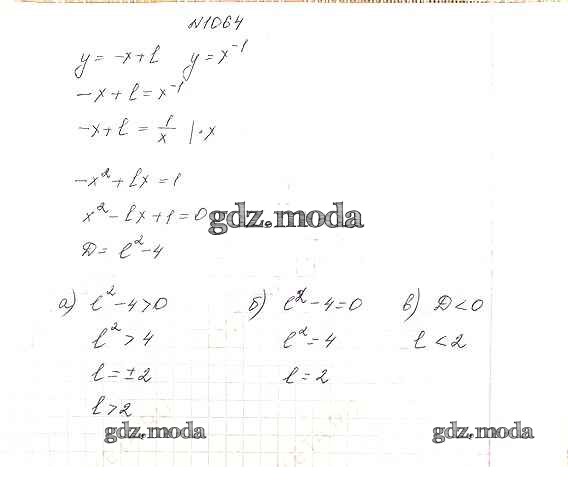 №1064
y = -x + l   y = x⁻¹
-x + l = x⁻¹
-x + l = 1/x |·x
-x² + lx = 1
x² - lx + 1 = 0
gdz.moda
D = l² - 4
а) l² - 4 > 0   б) l² - 4 = 0   в) D < 0
l² > 4   l² = 4   l < 2
l = ±2   l = 2
l > 2
gdz.moda   gdz.moda